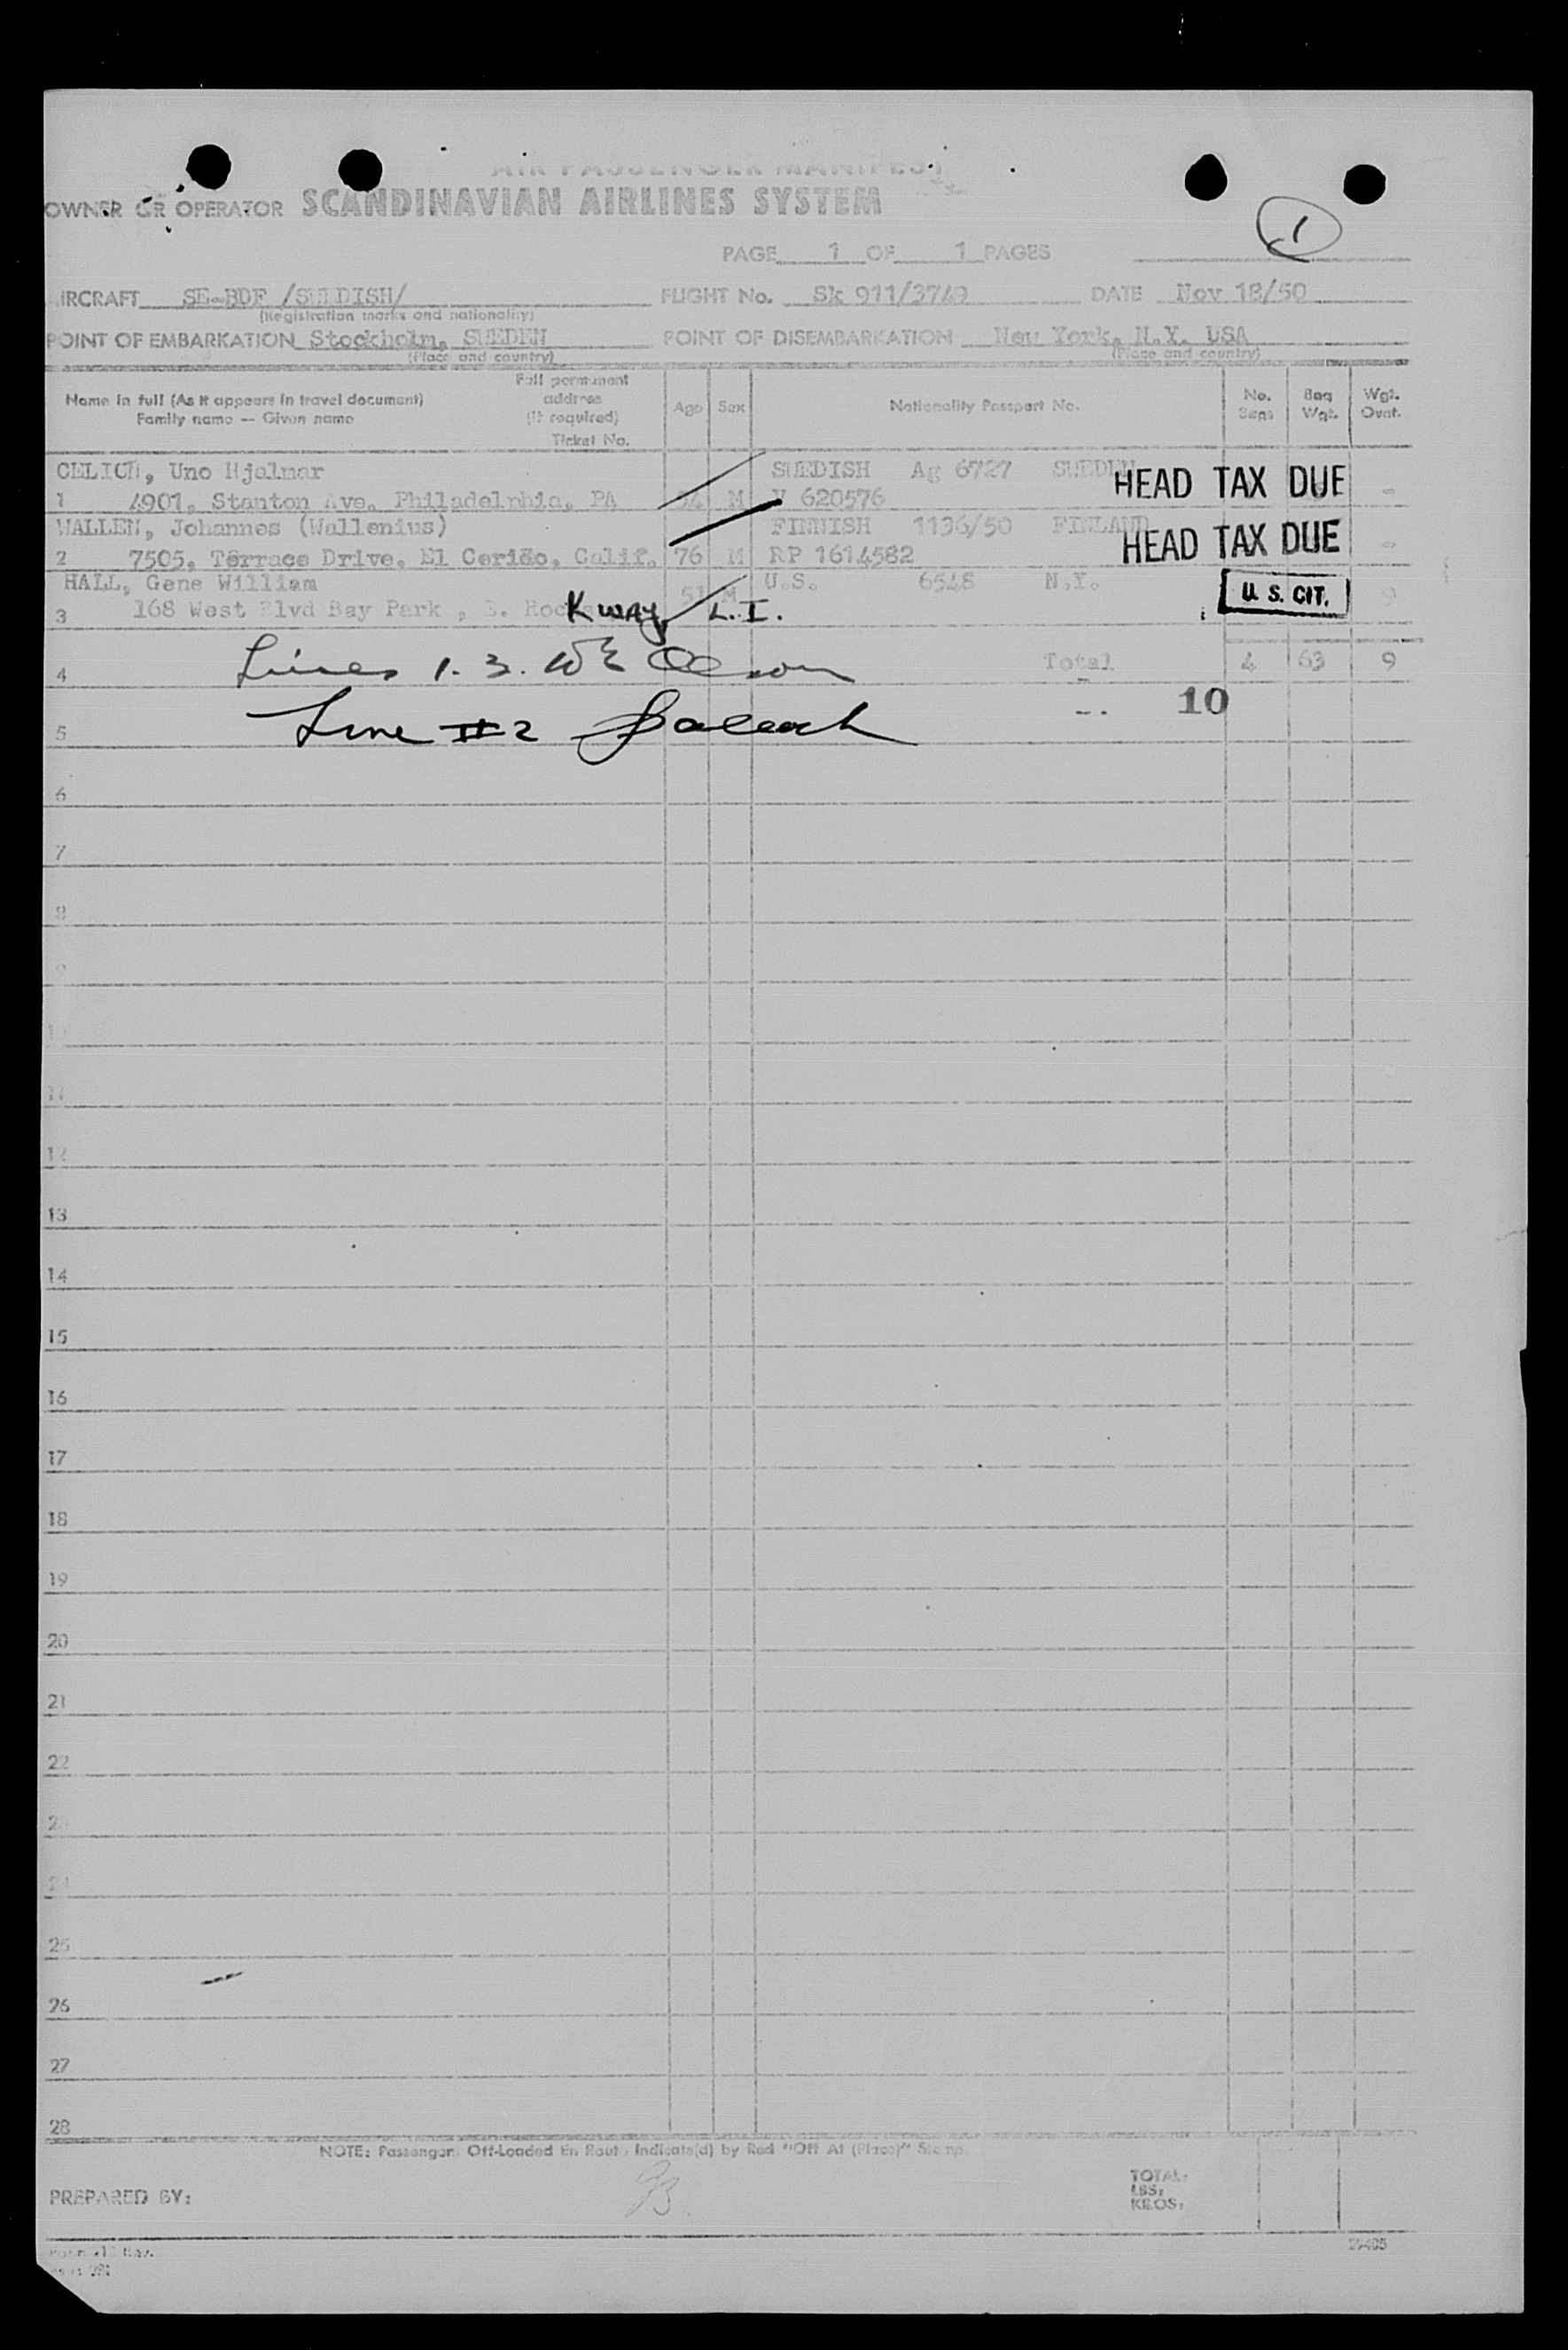 AIR PASSENGER MANIFEST
OWNER OR OPERATOR SCANDINAVIAN AIRLINES SYSTEM
1
PAGE 1 OF 1 PAGES
AIRCRAFT SE-BDF /SWEDISH/ FLIGHT No. SK 911/3749 DATE Nov 18/50
(Registration marks and nationality)
POINT OF EMBARKATION Stockholm, SWEDEN POINT OF DISEMBARKATION New York, N.Y. USA
(Place and country) (Place and country)
Name in full (As it appears in travel document) Family name — Given name
Full permanent address (if required) Ticket No.
Age Sex Nationality Passport No. No. Bags Bag Wgt. Wgt. Ovnt.
Uno Hjalmar SWEDISH Ag 6727 SWEDEN HEAD TAX DUE
1 4901, Stanton Ave. Philadelphia, PA M V 620576 -
WALLEN, Johannes (Wallenius) FINNISH 1136/50 FINLAND HEAD TAX DUE
2 7505, Terrace Drive, El Calif. 76 M RP 1614582 -
HALL, Gene William 51 M U.S. 6548 N.Y. U. S. CIT. 9
3 168 West Blvd Bay Park, E. Rockway L.I.
4 Lines 1. 3. Olson Total 4 63 9
5 Line #2 -. 10
6
7
8
9
10
11
12
13
14
15
16
17
18
19
20
21
22
23
24
25
26
27
28
NOTE: Passengers Off-Loaded En Route Indicate(d) by Red "Off At (Place)" Stamp
PREPARED BY:
TOTAL:
LBS:
KILOS: